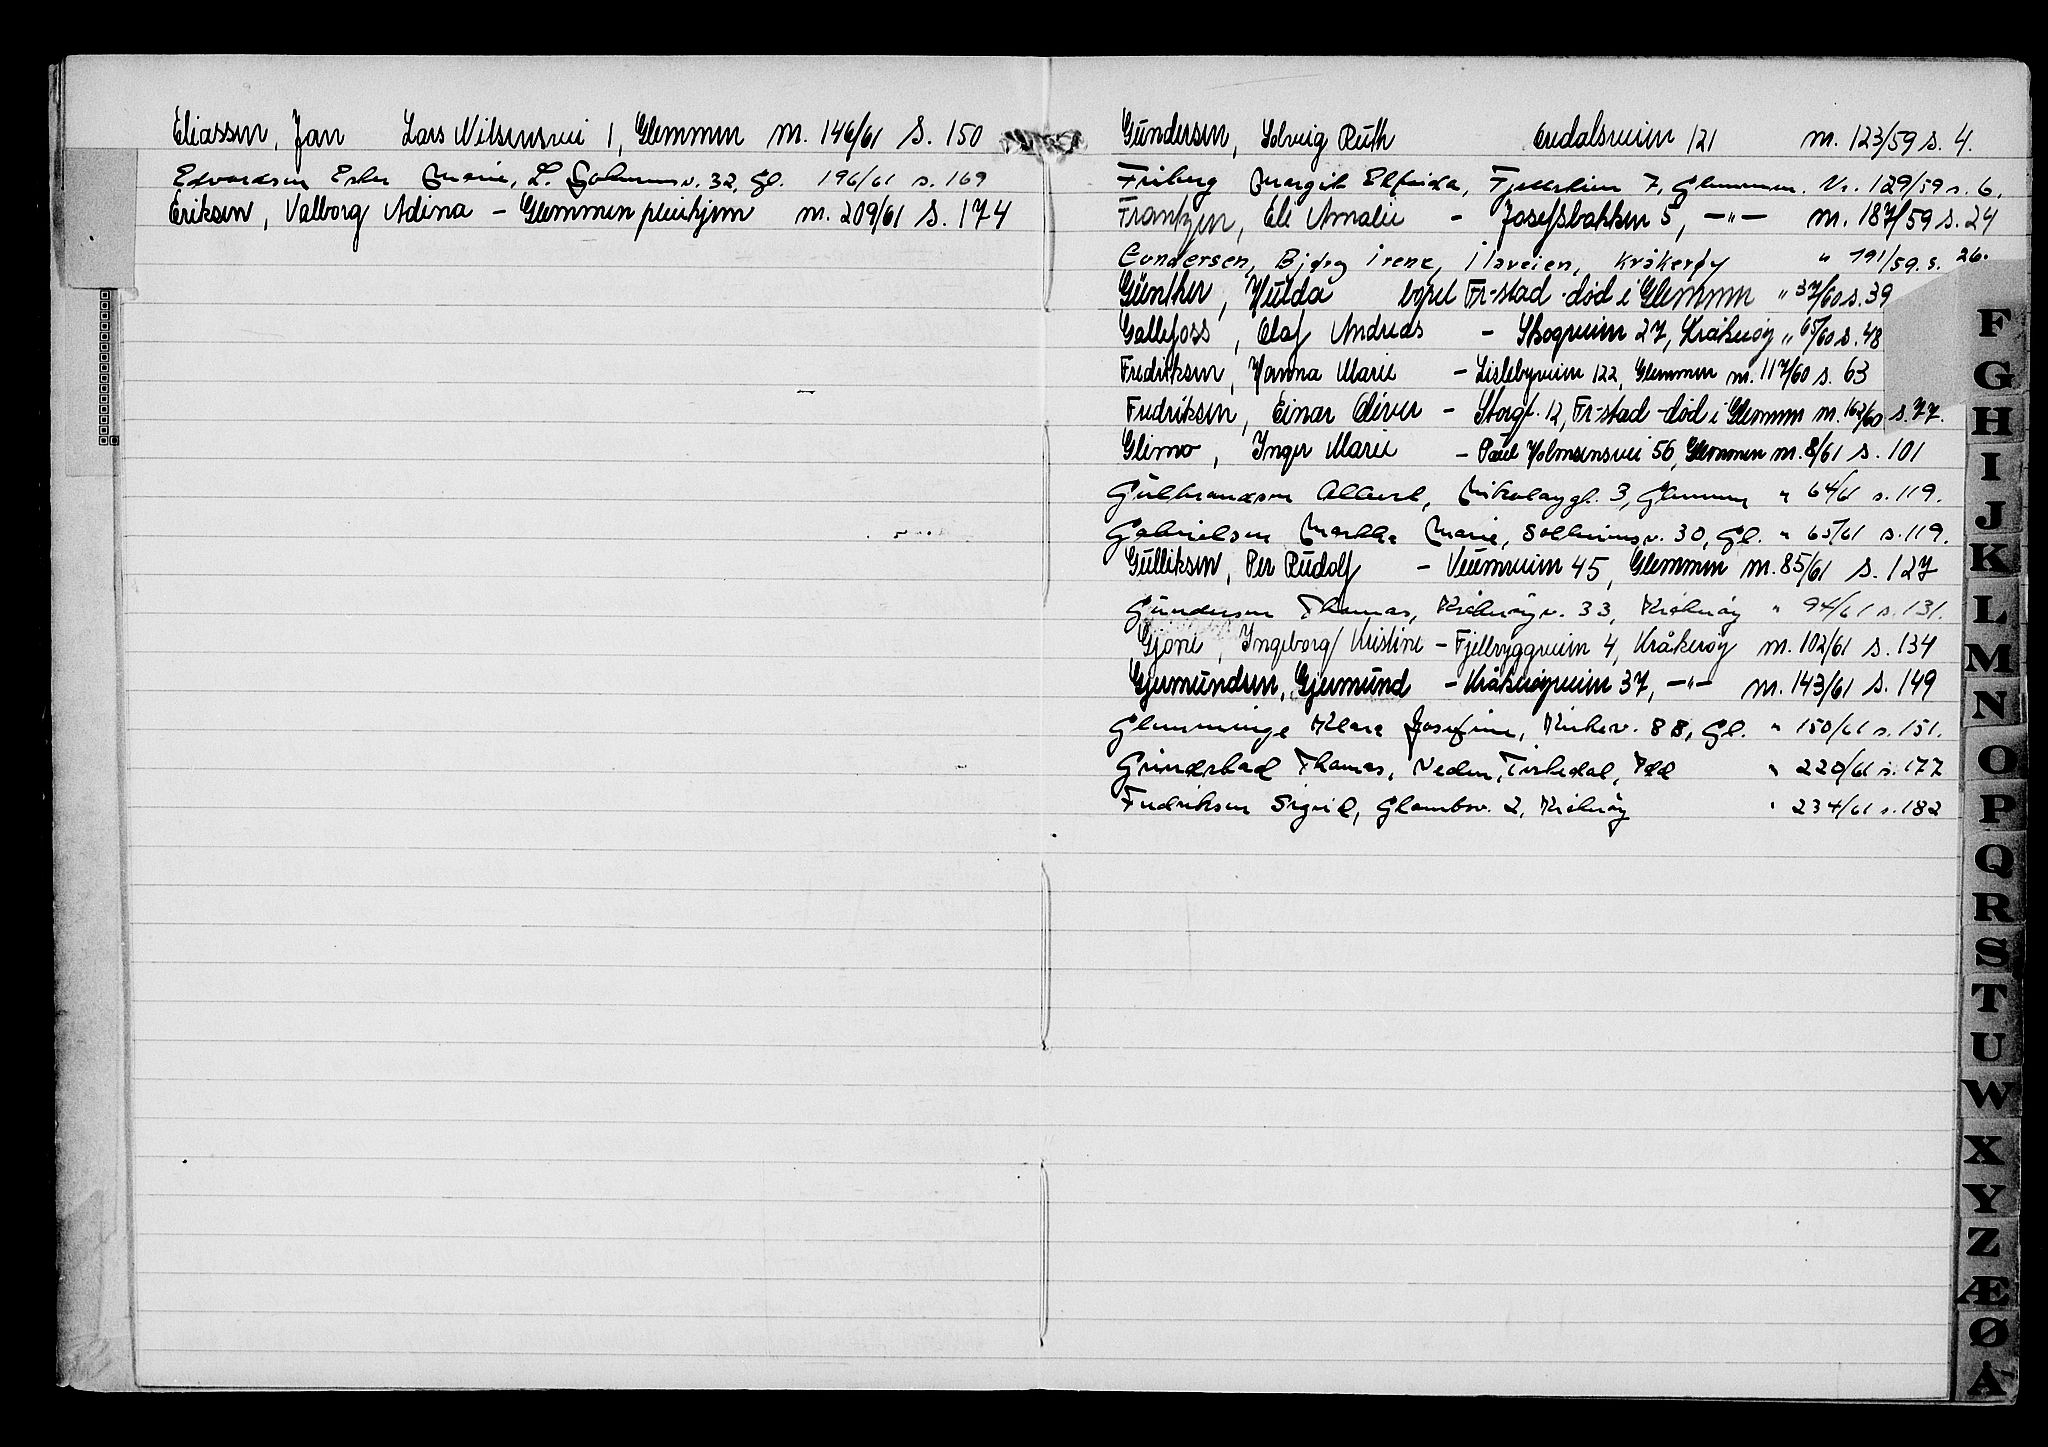 Eliassen, Jan Lars Nilsensvei 1, Glemmen nr. 146/61 s. 150
Edvardsen Ester Marie, L. v. 32, Gl. 196/61 s. 169
Eriksen, Valborg Adina - Glemmen pleiehjem nr. 209/61 s. 174
Gundersen, Solveig Ruth Oredalsveien 121 nr. 123/59 s. 4.
Friberg Margit Elfrida, 7, Glemmen. Nr. 129/59 s. 6.
Frantzen, Eli Amalie - Josefsbakken 5, -"- nr. 187/59 s. 24
Gundersen, Bjørg Irene, Ilaveien, Kråkerøy " 191/59. s. 26.
Günther, Hulda bopel Fr-stad - død i Glemmen " 37/60 s. 39
Gallefoss, Olaf Andreas - Skogveien 27, Kråkerøy " 65/60 s. 48
Fredriksen, Hanna Marie - Lislebyveien 122, Glemmen nr. 117/60 s. 63
Fredriksen, Einar Oliver - Storgt. 12, Fr-stad - død i Glemmen nr. 162/60 s. 77.
Glimo, Inger Marie - Paul Holmsensvei 56, Glemmen nr. 8/61 s. 101
Gulbrandsen Albert, Nikolaygt. 3, Glemmen " 64/61 s. 119.
Gabrielsen Martha Marie, v. 30, Gl. " 65/61 s. 119.
Gulliksen, Per Rudolf - Veumveien 45, Glemmen nr. 85/61 s. 127
Gundersen Thomas, Kråkerøyv. 33, Kråkerøy " 94/61 s. 131.
Gjøne, Ingeborg Kristine - Fjellbyggveien 4, Kråkerøy nr. 102/61 s. 134
Gjermundsen, Gjermund - Kråkerøyveien 37, -"- nr. 143/61 s. 149
Glemminge Klara Josefine, Kirkev. 88, Gl. " 150/61 s. 151.
Grindstad Thomas, Veden, Tistedal, Idd " 220/61 s. 177
Fredriksen Sigrid, Glombov. 2, Kråkerøy " 234/61 s. 182
F
G
H
I
J
K
L
M
N
O
P
Q
R
S
T
U
W
X
Y
Z
Æ
Ø
A